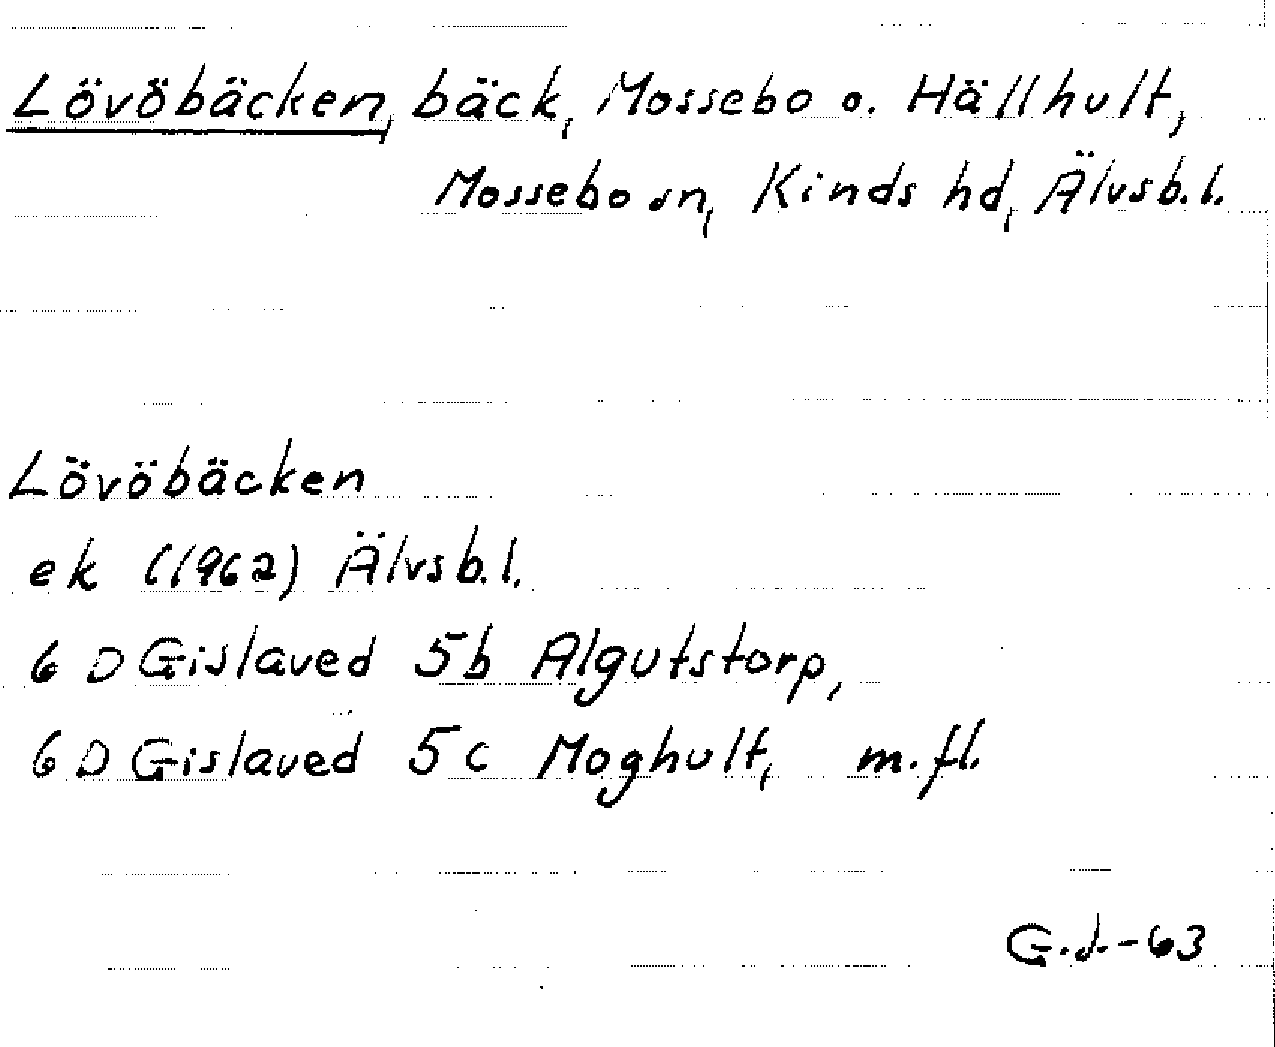 Lövöbäcken, bäck, Mossebo o. Hällhult,
Mossebo sn, Kinds hd, Älvsb. l.
Lövöbäcken
ek (1962) Älvsb. l.
6 D Gislaved 5b Algutstorp,
6 D Gislaved 5c Moghult, m. fl.
G.d.-63